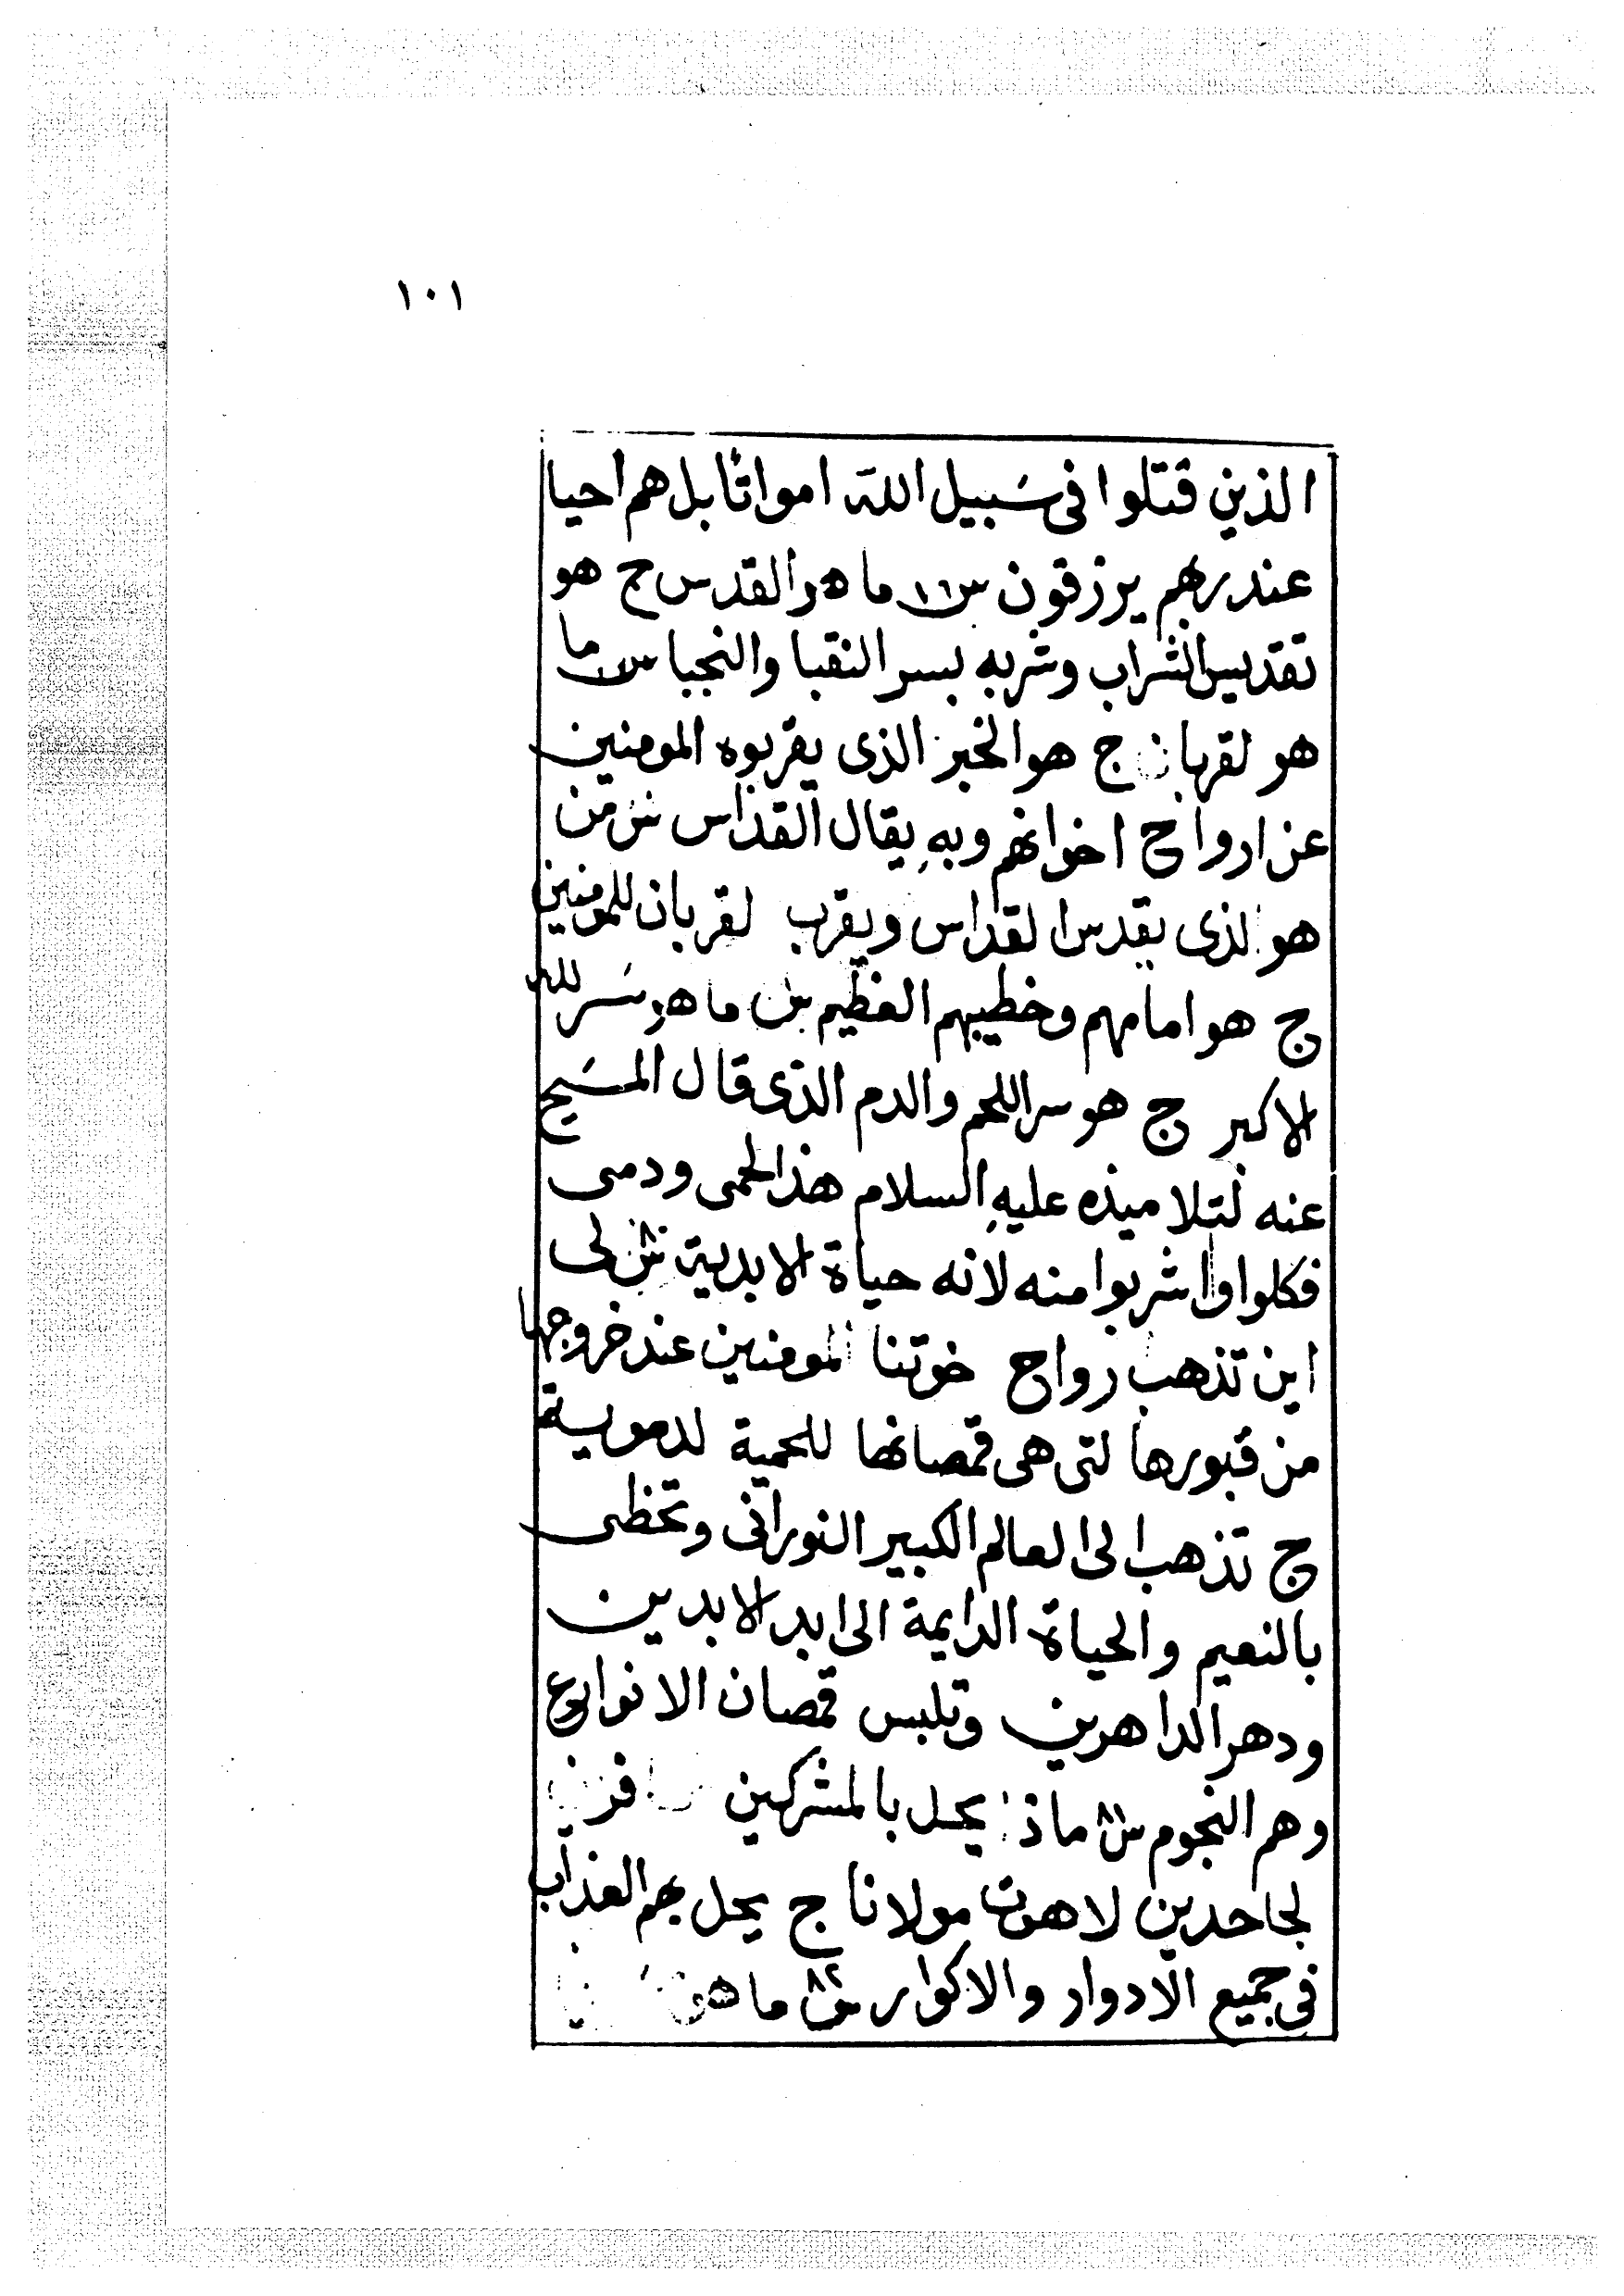 ١٠١
الذين قتلوا فى سَبيل الله امواتًا بل هم احيا
عند ربهم يرزقون س ما هو القدس ج هو
تقديس الشراب وشربه بسر النقبا والنجبا س ما
هو لقربان ج هو الخبز الذى يقربوه المومنين
عن ارواح اخوانهم وبه يقال القداس س من
هو الذى يقدس القداس ويقرب لقربان للمومنين
ج هو امامهم وخطيبهم العظيم س ما هو سَر لله
الاكبر ج هو سر اللحم والدم الذى قال المسَيح
عنه لتلاميذه عليه السلام هذا لحمى ودمى
فكلوا واشربوا منه لانه حياة الابدية س لى
اين تذهب رواح خوتنا المومنين عند خروجها
من قبورها لتى هى قمصانها للحمية لدموية
ج تذهب الى لعالم الكبير النورانى وتحظى
بالنعيم والحياة الدايمة الى ابد الابدين
ودهر الداهرين وتلبس قمصان الانوار
وهم النجوم س ماذا يحل بالمشركين
لجاحدين لاهوت مولانا ج يحل بهم العذاب
فى جميع الادوار والاكوار س ما هو